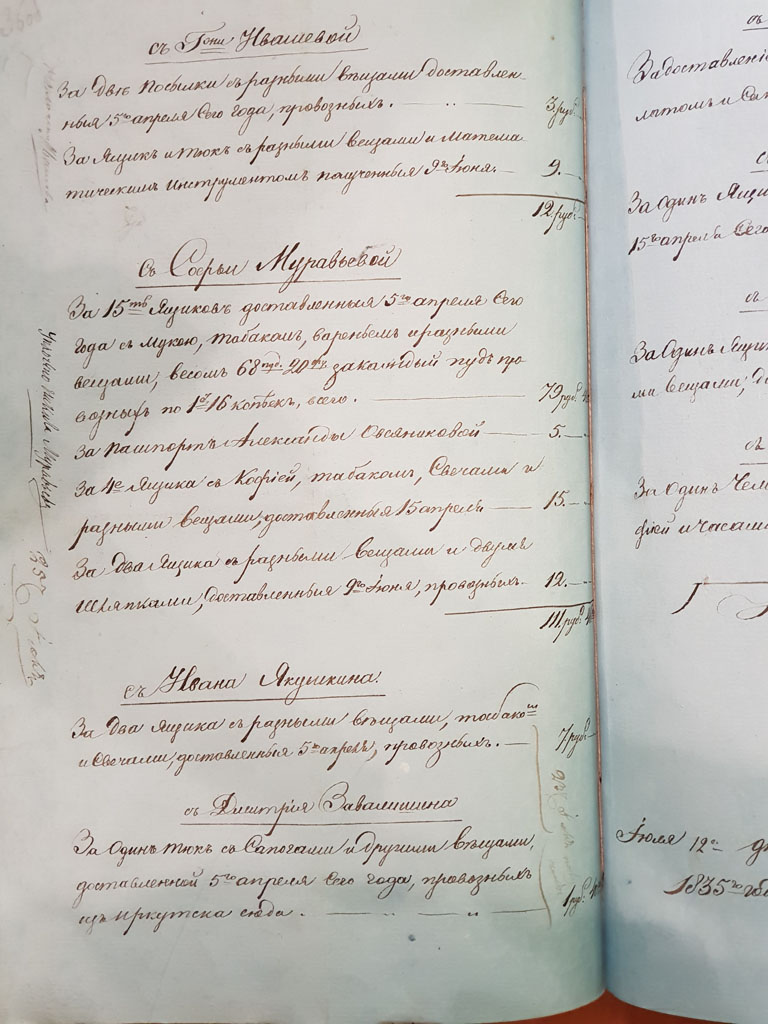 съ Г<sup>жи</sup> Ивашевой
За две посылки съ разными вещами доставлен-
ныя 5<sup>го</sup> апреля сего года, провозныхъ. — 3 руб.
За Ящикъ и тюкъ съ разными вещами и матема-
тическимъ инструментомъ полученныя 9<sup>го</sup> Июня. — 9. —
12 руб.
Съ Софьи Муравьевой
За 15<sup>ть</sup> Ящиковъ доставленныя 5<sup>го</sup> апреля Сего
года съ мукою, табакомъ, вареньемъ и разными
вещами, весомъ 68 пуд. 20 за каждый пудъ про-
возныхъ по 1 16 копеекъ, всего. — 79 руб.
За пашпортъ Александры Овсяниковой — 5. —
За 4<sup>е</sup> Ящика съ Кофіей, табакомъ, Свечами и
разными вещами, доставленныя 15 апреля — 15. —
За два Ящика съ разными вещами и двумя
шляпками, доставленныя 9<sup>го</sup> Июня, провозныхъ. 12. —
111 руб.
съ Ивана Якушкина.
За два Ящика съ разными вещами, табако<sup>мъ</sup>
и Свечами, доставленныя 5<sup>го</sup> апреля, провозныхъ. — 7 руб.
съ Дмитрія Завалишина
За одинъ тюкъ съ Сапогами и другими вещами,
доставленной 5<sup>го</sup> апреля Сего года, провозныхъ
изъ Иркутска сюда. — 1 руб.
За доставленіе
За одинъ Ящи
15<sup>го</sup> апреля Сего
За Одинъ Ящи
ми вещами, до
За Одинъ Чем
фіей и Часами
Июля 12<sup>го</sup> д
1835<sup>го</sup> го